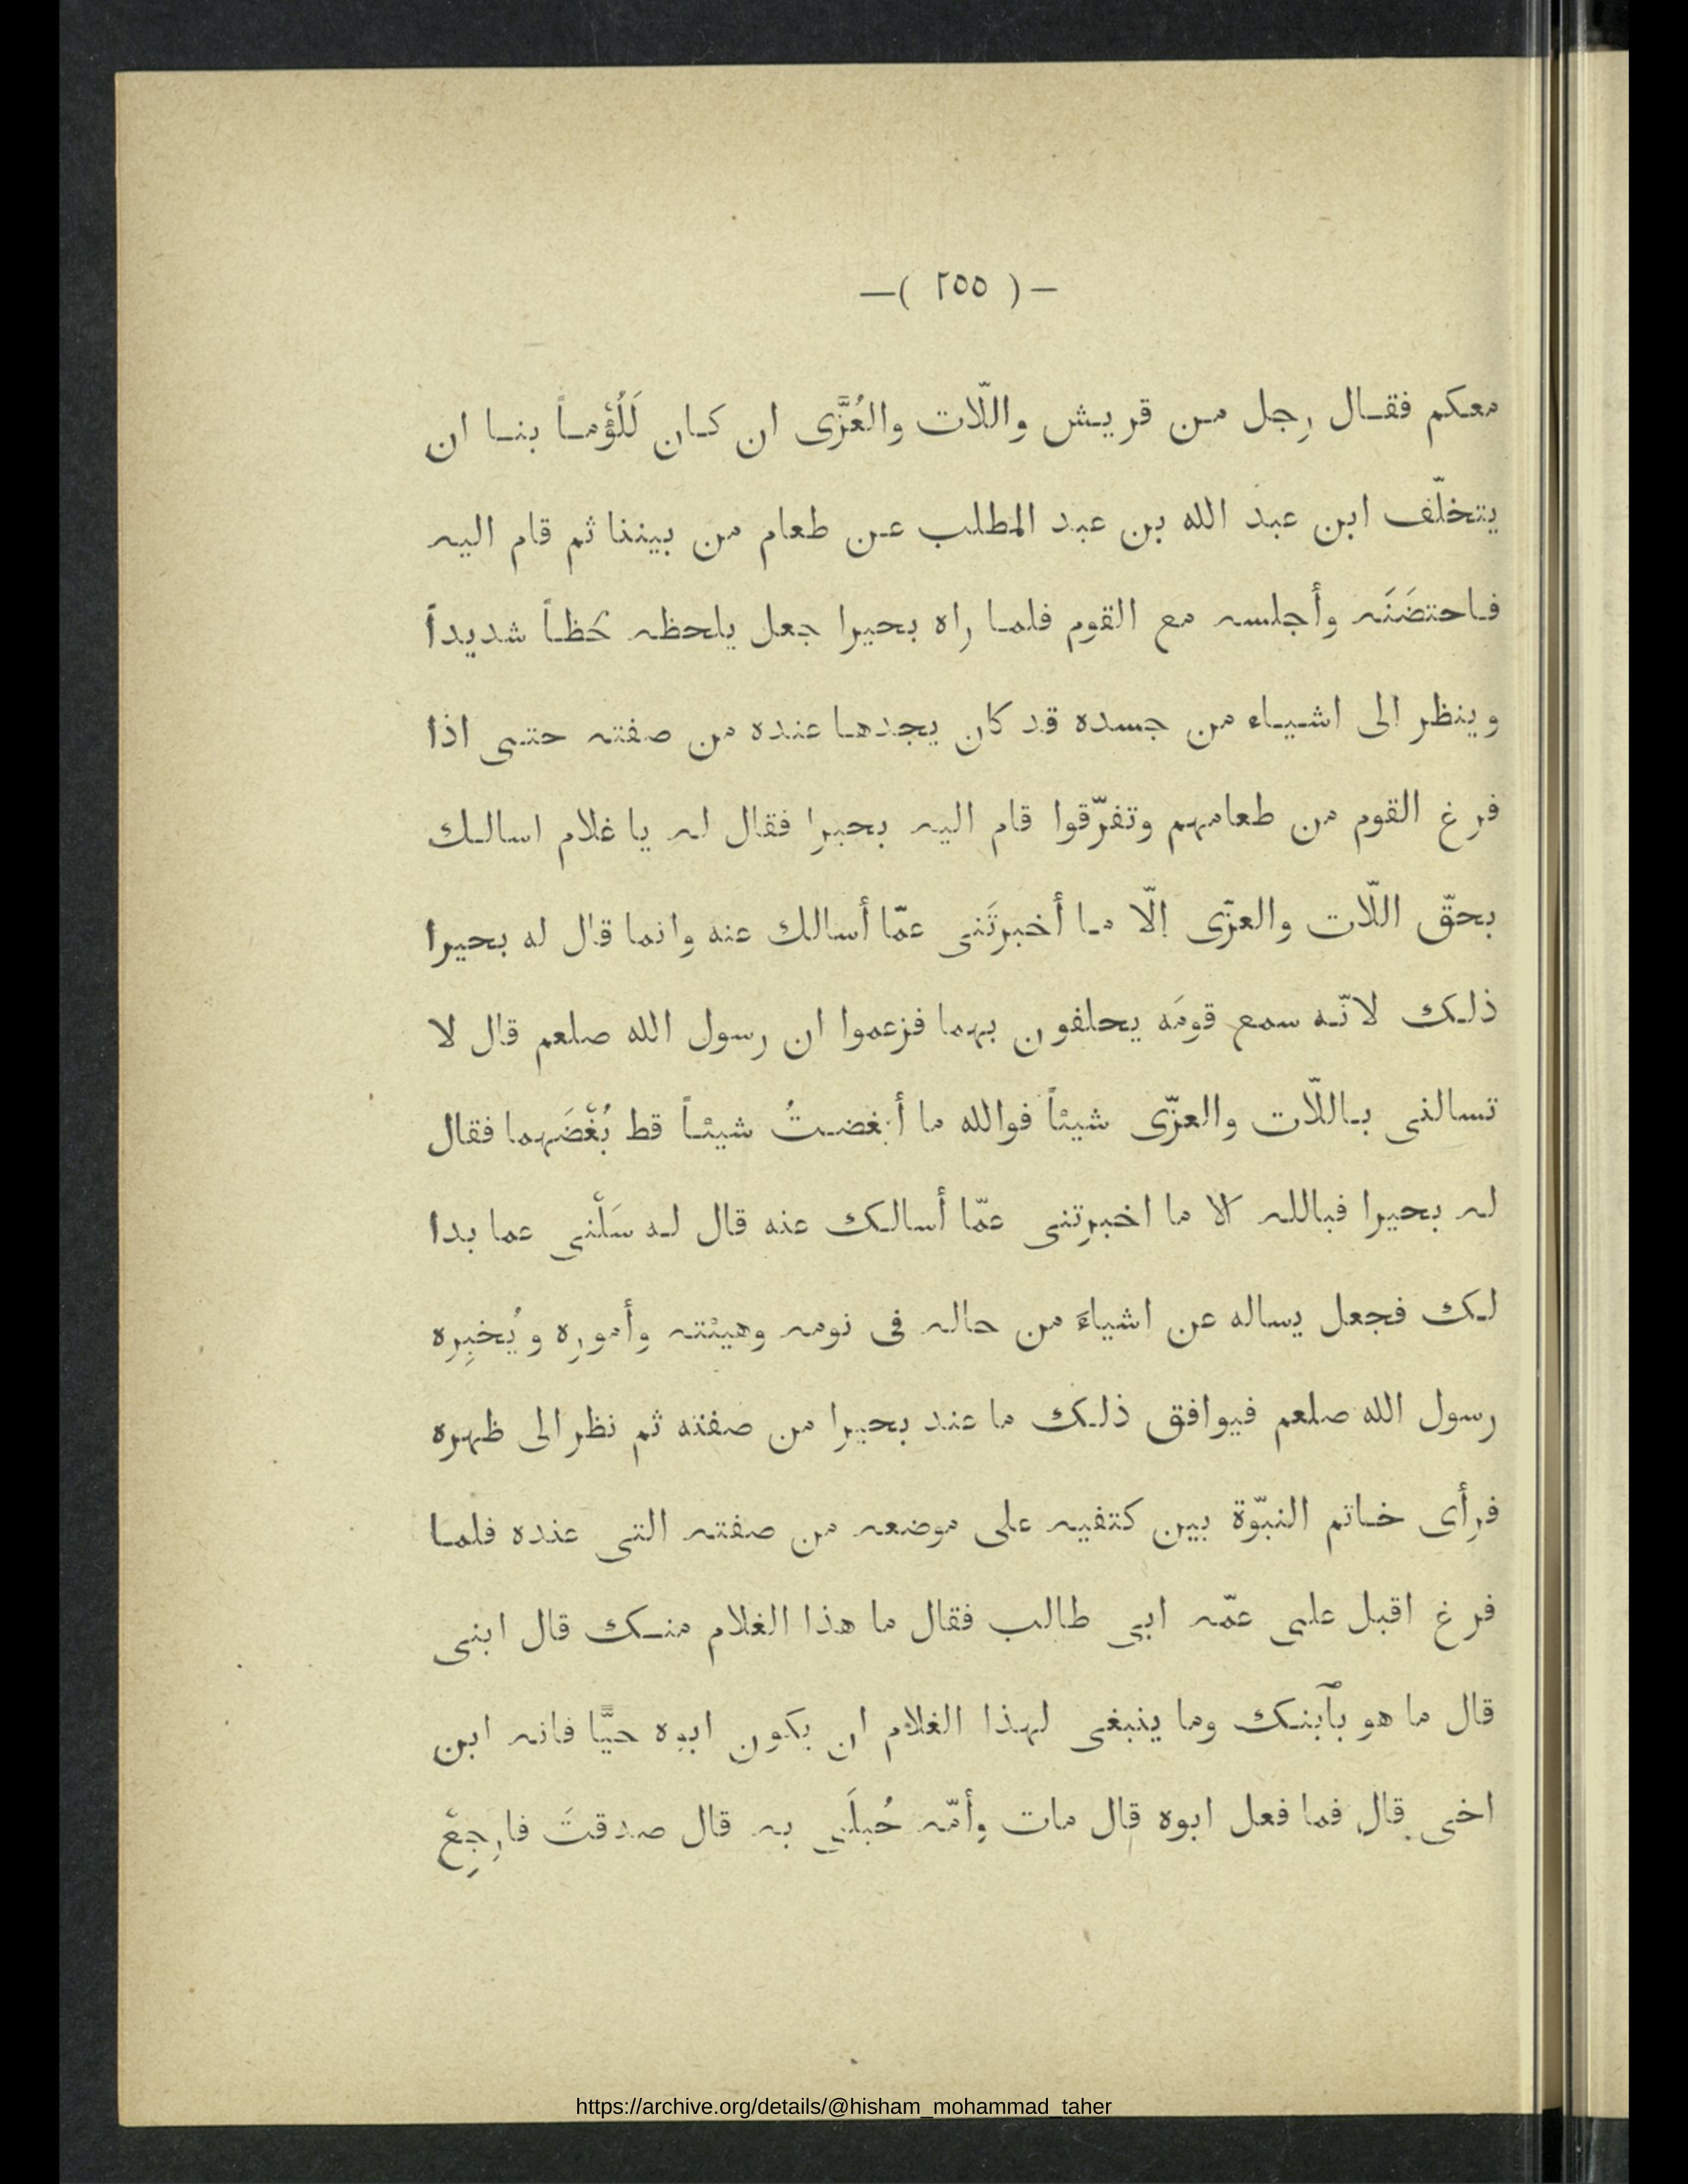 —( ٢٥٥ )—
معكم فقال رجل من قريش واللّات والعُزَّى ان كان لَلُؤماً بنا ان
يتخلّف ابن عبد الله بن عبد المطلب عن طعام من بيننا ثم قام اليه
فاحتضَنَه وأجلسه مع القوم فلما راه بحيرا جعل يلحظه لَحظاً شديداً
وينظر الى اشياء من جسده قد كان يجدها عنده من صفته حتى اذا
فرغ القوم من طعامهم وتفرّقوا قام اليه بحيرا فقال له يا غلام اسالك
بحقّ اللّات والعزّى إلّا ما أخبرتَنى عمّا أسالك عنه وانما قال له بحيرا
ذلك لانّه سمع قومَه يحلفون بهما فزعموا ان رسول الله صلعم قال لا
تسالنى باللّات والعزّى شيئاً فوالله ما أبغضتُ شيئاً قط بُغْضَهما فقال
له بحيرا فبالله الا ما اخبرتنى عمّا أسالك عنه قال له سَلْنى عما بدا
لك فجعل يساله عن اشياءَ من حاله فى نومه وهيئته وأمورِه ويُخبِره
رسول الله صلعم فيوافق ذلك ما عند بحيرا من صفته ثم نظر الى ظهره
فرأى خاتم النبوّة بين كتفيه على موضعه من صفته التى عنده فلما
فرغ اقبل على عمّه ابى طالب فقال ما هذا الغلام منك قال ابنى
قال ما هو بٱبنك وما ينبغى لهذا الغلام ان يكون ابوه حيًّا فانه ابن
اخى قال فما فعل ابوه قال مات وأمّه حُبلَى به قال صدقتَ فارجِعْ
https://archive.org/details/@hisham_mohammad_taher